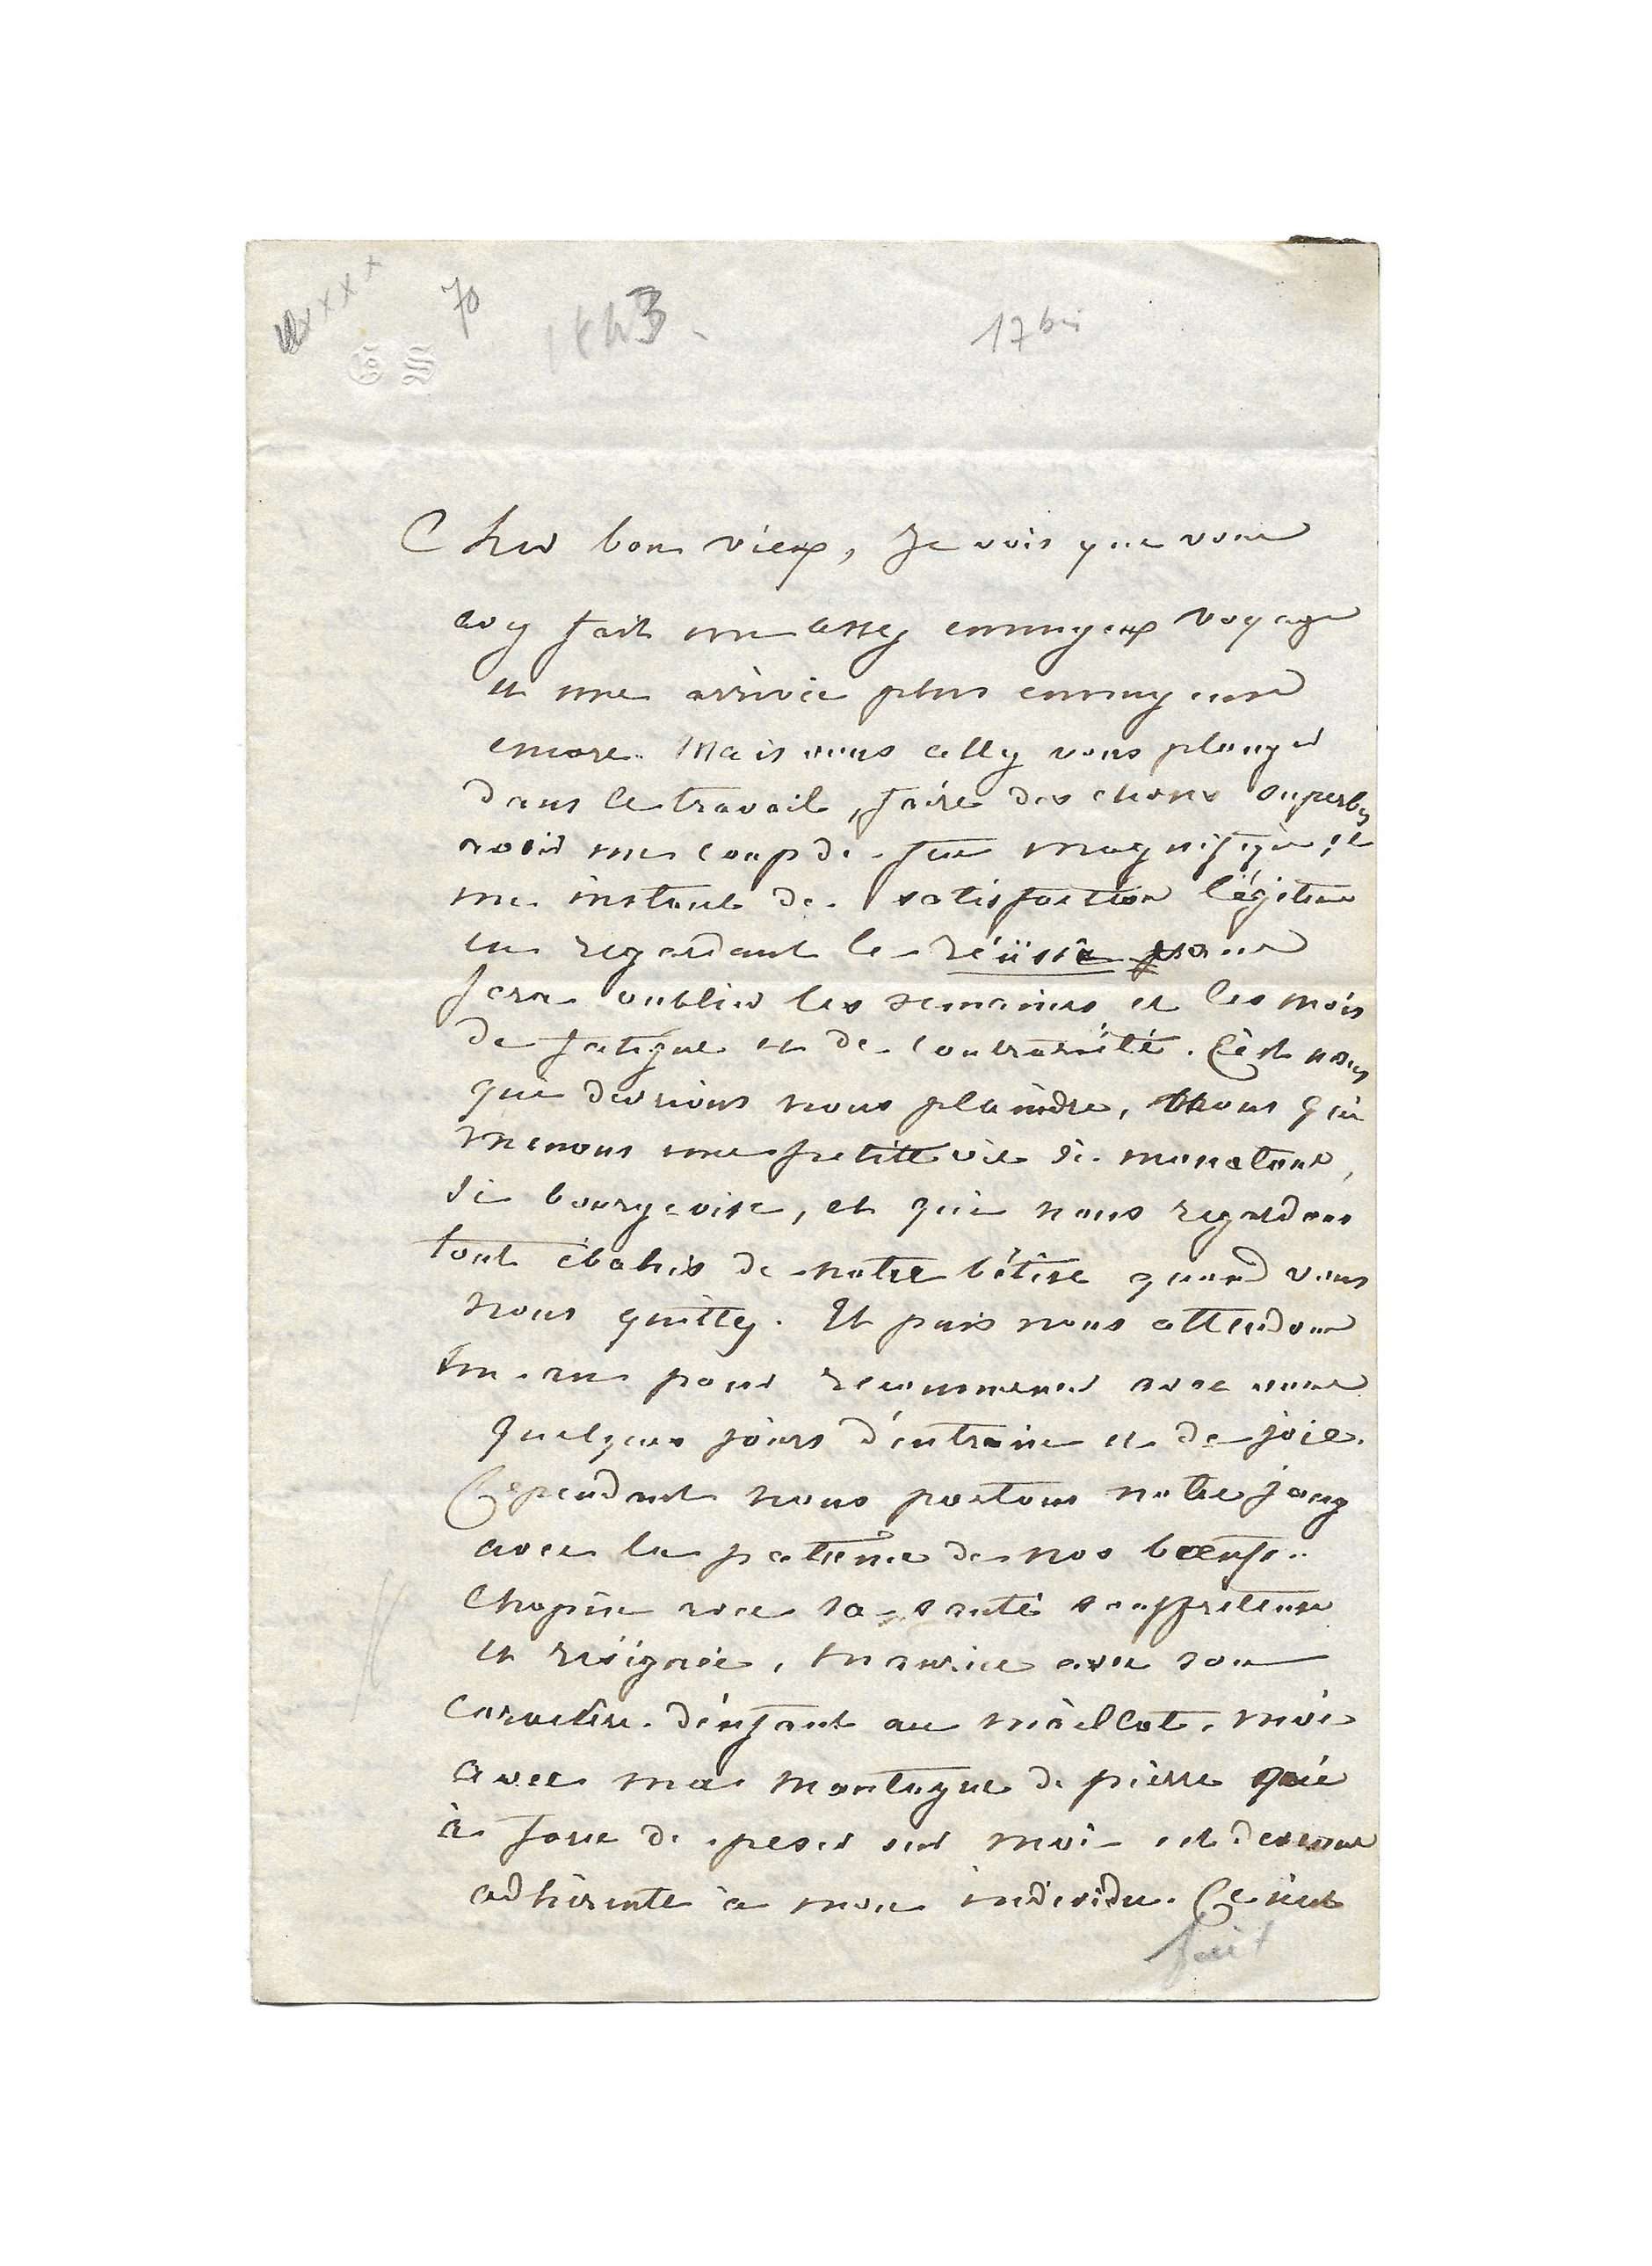 70
1843.
17 bis
G S
Cher bon vieux, je vois que vous
avez fait un assez ennuyeux voyage
et une arrivée plus ennuyeuse
encore. Mais vous allez vous plonger
dans le travail, faire des choses superbes
avoir un coup de feu magnifique, et
un instant de satisfaction légitime
en regardant le réussi vous
fera oublier les semaines et les mois
de fatigue et de contrariété. C'est nous
qui devrions nous plaindre, nous qui
menons une petite vie si monotone,
si bourgeoise, et qui nous regardons
tout ébahis de notre bêtise quand vous
nous quittez. Et puis nous attendons
un an pour recommencer avec vous
quelques jours d'entrain et de joie.
Cependant nous portons notre joug
avec la patience de nos bœufs..
Chopin avec sa santé souffreteuse
et résignée, Maurice avec son
caractère d'enfant au maillot, moi
avec ma montagne de pierre qui
à force de peser sur moi est devenue
adhérente à mon individu. Ce n'est
fait